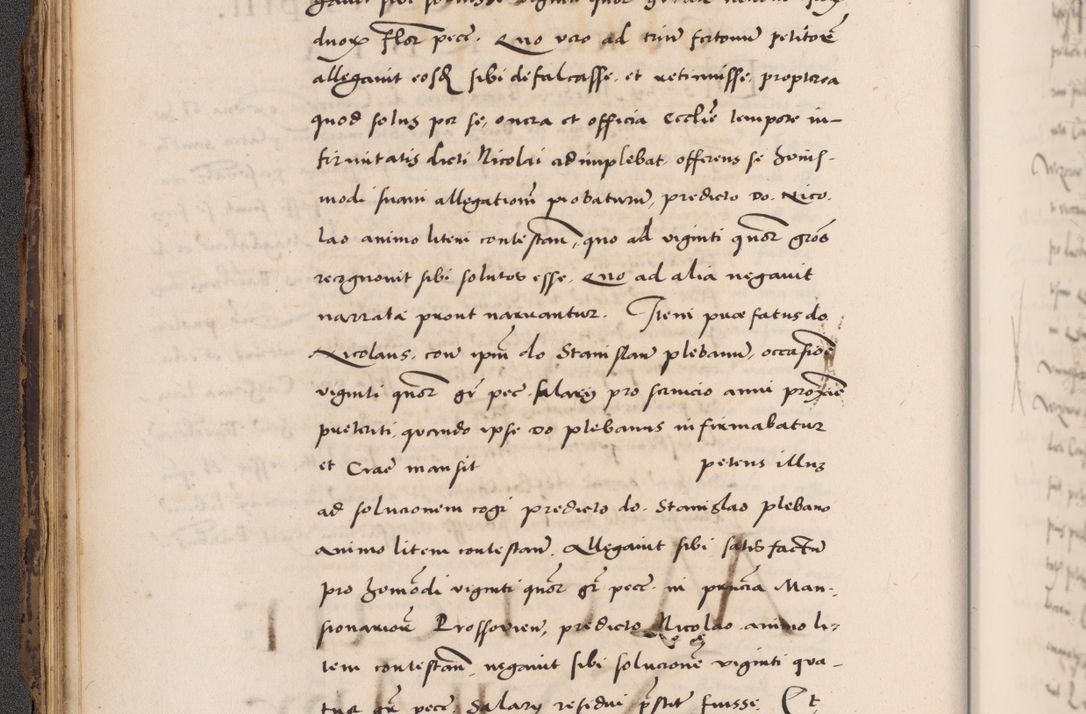 duorum Flor pecc. Quo vero ad trium fertonum petitore
allegavit eosdem sibi defalcasse, et retinuisse, propterea
quod solus per se, onera et officia Ecclie tempore in-
firmitatis dicti Nicolai adimplebat offerens se huius-
modi suam allegationem probaturum, predicto do. Nico-
lao animo litem contestan, quo ad viginti quor gros
recognovit sibi solutos esse. Quo ad alia negavit
narrata prout narrantur. Item prae fatus do
Nicolaus. con ipm do Stanislaum plebanum, occasione
viginti quor gr pec. salarij pro servicio anni proxime
preteriti, quando ipse do plebanus infirmabatur
et Crac mansit petens illum
ad solucionem cogi predicto do. Stanislao plebano
animo litem contestan. Allegavit sibi satisfactum
pro huiomodi viginti quor gr pecc. in puncia Man-
sionariorum Crossovien, predicto Nicolao animo li-
tem contestan, negavit sibi solucionem viginti qua-
tuor gr pecc. Salary residui pstit fuisse. Et